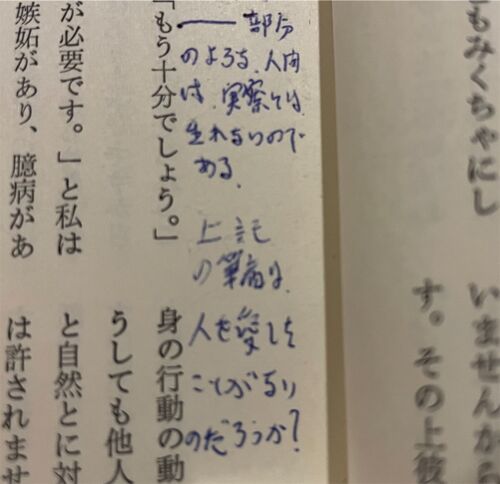 もみくちゃにし
いませんから
す。その上彼
部分
人間
は、実察には
生れないので
ある。
上記
人を愛した
ことが
のだろうか?
「もう十分でしょう。」
が必要です。」と私は
嫉妬があり、臆病があ
身の行動の動
うしても他人
と自然とに対
は許されませ